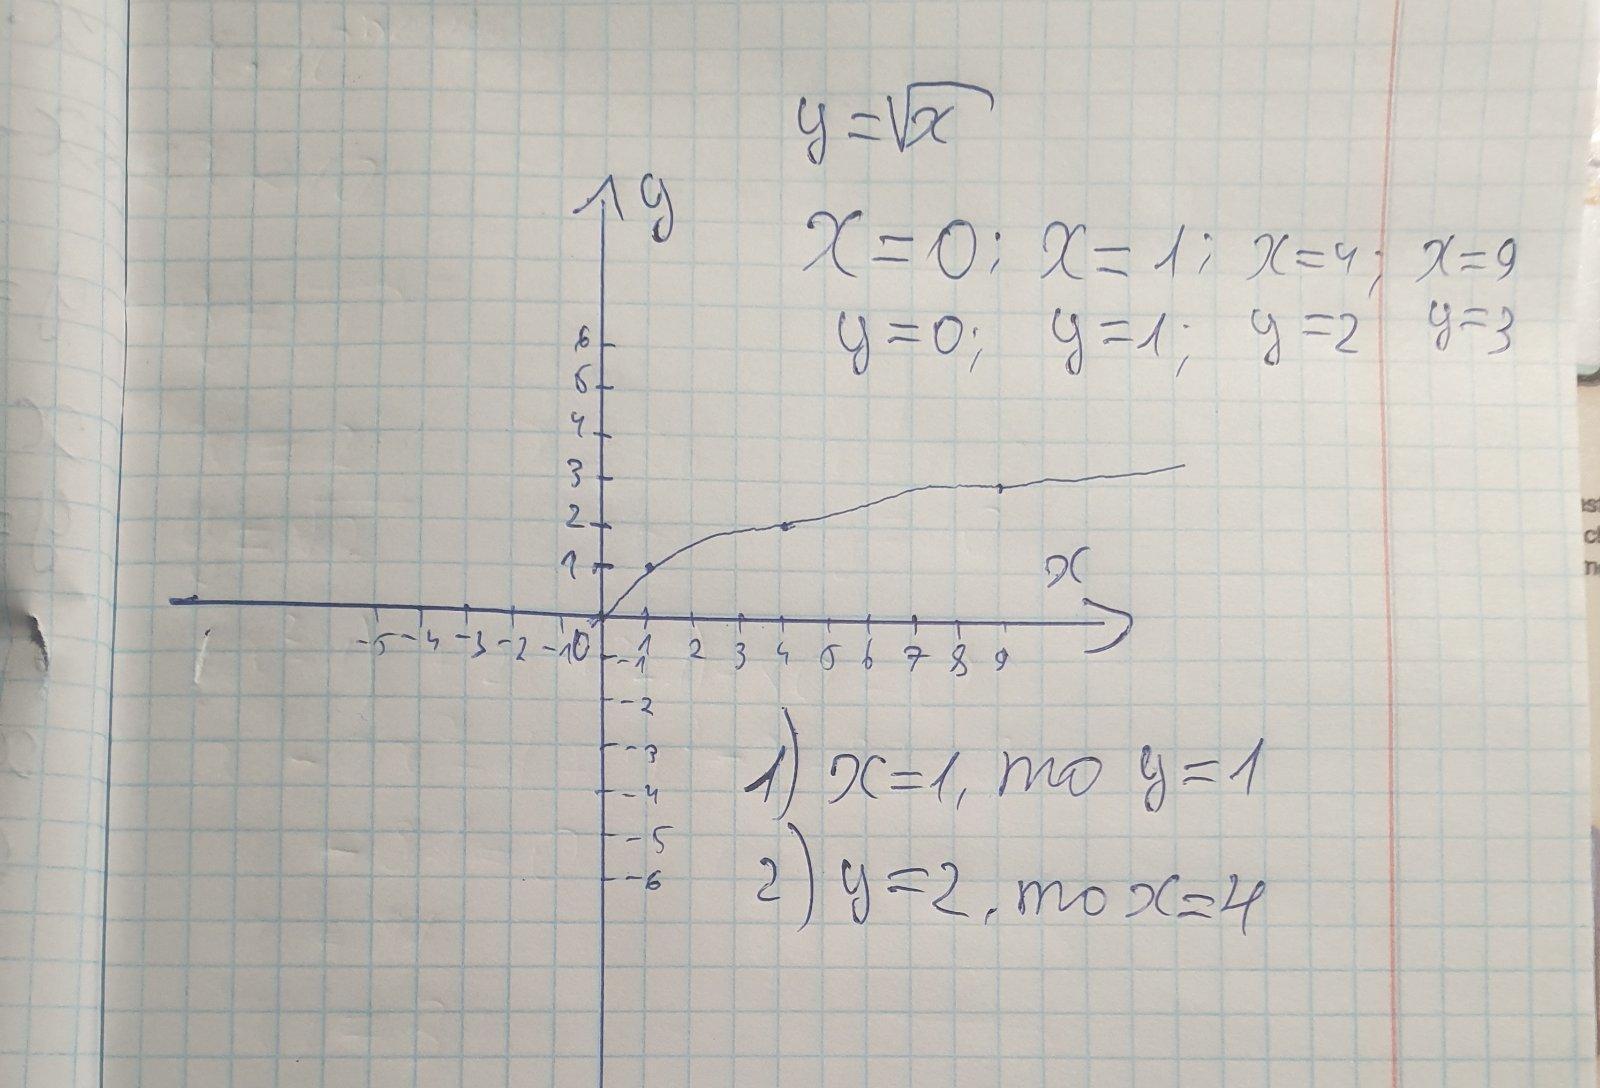 y = √x
y
x = 0; x = 1; x = 4; x = 9
y = 0; y = 1; y = 2 y = 3
6
5
4
3
2
1
x
-5 -4 -3 -2 -1 0 1 2 3 4 5 6 7 8 9
-1
-2
-3
-4
-5
-6
1) x = 1, то y = 1
2) y = 2, то x = 4